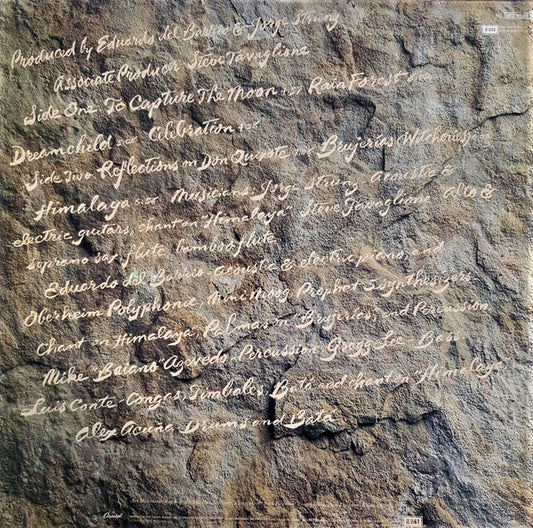 Produced by Eduardo del Barrio & Jorge Strunz
Associate Producer Steve Tavaglione
Side One To Capture The Moon Rain Forest
Dreamchild Celebration
Side Two Reflections on Don Quixote Brujerias (Witcheries)
Himalaya Musicians: Jorge Strunz Acoustic &
electric guitars, chant on "Himalaya" Steve Tavaglione Alto &
soprano sax, flute, bamboo flute
Eduardo del Barrio Acoustic & electric piano, and
Oberheim Polyphonic, Mini Moog, Prophet 5 synthesizers
Chant on Himalaya Palmas on "Brujerias," and Percussion
Mike "Baiano" Azevedo, Percussion Gregg Lee Bass
Luis Conte-Congas, Timbales, Batá and chant on "Himalaya"
Alex Acuña Drums and Batá
Capitol